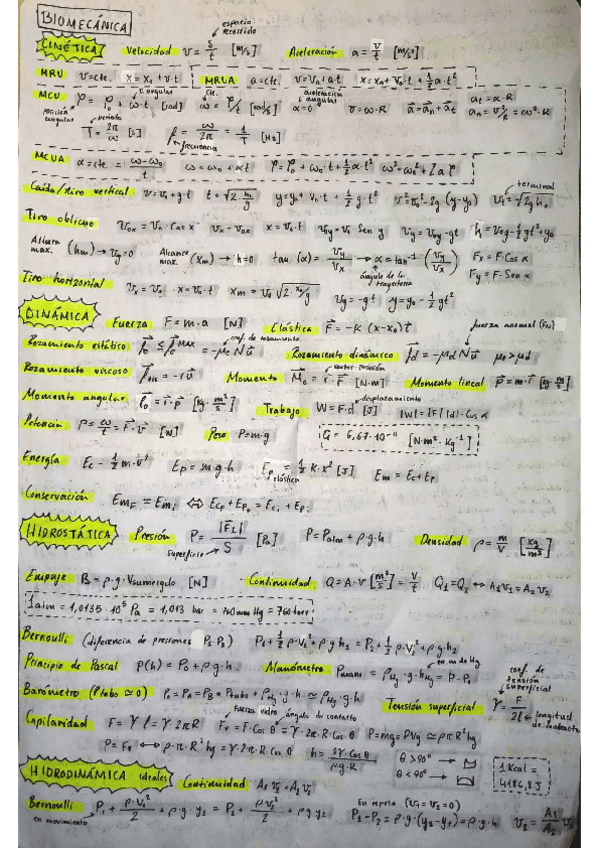 BIOMECÁNICA
CINÉTICA Velocidad v = s/t espacio recorrido [m/s] Aceleración a = v/t [m/s²]
MRU v = cte. x = x₀ + v·t MRUA a = cte. v = v₀ + a·t x = x₀ + v₀·t + 1/2 a·t²
MCU φ = φ₀ + ω·t [rad] v. angular ω = φ/t cte. [rad/s] α = 0 aceleración angular v = ω·R a = aₙ + aₜ aₜ = α·R
posición angular aₙ = v²/R = ω²·R
T = 2π/ω periodo [s] f = ω/2π = 1/T [Hz]
frecuencia
MCUA α = cte. = ω-ω₀/t ω = ω₀ + αt φ = φ₀ + ω₀·t + 1/2 α·t² ω² = ω₀² + 2αφ
Caída/tiro vertical v = v₀ + g·t y = y₀ + v₀·t + 1/2 g·t² terminal
Tiro oblicuo x = v₀·t v_y = v_oy - gt
Altura max. (hm) → v_y = 0 Alcance max. (Xm) → h = 0 tan. (α) = v_y/v_x → α = tan⁻¹ (v_y/v_x) F_x = F·Cos α
ángulo de la trayectoria F_y = F·Sen α
Tiro horizontal v_x = v₀ x = v₀·t v_y = -g·t y = y₀ - 1/2 gt²
DINÁMICA Fuerza F = m·a [N] Elástica F = -K (x-x₀) fuerza normal (FN)
Rozamiento estático coef. de rozamiento Rozamiento dinámico fd = -μd N u μ₀ > μd
Rozamiento viscoso Momento M₀ = r·F [N·m] Momento lineal
Momento angular Trabajo W = F·d desplazamiento [J] |W| = |F| |d|·Cos α
Potencia P = ω/t = F·v [N] Peso P = m·g G = 6,67·10⁻¹¹ [N·m²·Kg⁻¹]
Energía Ec = 1/2 m·v² Ep = m·g·h Ep elástica = 1/2 K·x² [J] Em = Ec + Ep
Conservación
HIDROSTÁTICA Presión P = |F⊥|/S [Pa] P = Patm + ρ·g·h Densidad ρ = m/V [Kg/m³]
superficie
Empuje B = ρ·g·Vsumergido [N] Continuidad Q = A·v [m³/s] = V/t Q₁ = Q₂ ↔ A₁v₁ = A₂v₂
1 atm = 1,0135·10⁵ Pa = 1,013 bar = 760 mm Hg = 760 torr
Bernoulli (diferencia de presiones P₁ P₂) P₁ + 1/2 ρ·v₁² + ρ g h₁ = P₂ + 1/2 ρ·v₂² + ρ·g·h₂
Principio de Pascal P(h) = P₀ + ρ·g·h Manómetro Pmano = ρHg·g·hHg = P-P₀ en m de Hg
Barómetro (Ptubo ≃ 0) P₀ = PA = PB = Ptubo + ρHg·g·h ≃ ρHg·g·h Tensión superficial γ = F/2l coef. de tensión superficial
longitud de contacto
Capilaridad F = γ l = γ·2πR Fuerza vidro ángulo de contacto Fv = F·Cos θ = γ·2π·R·Cos θ P = mg = ρVg ≃ ρπR²hg
P = Fv ↔ ρ·π·R²hg = γ·2π·R·Cos θ h = 2γ·Cos θ/ρg·R θ > 90° → θ < 90° → 1 Kcal = 4186,8 J
HIDRODINÁMICA ideales Continuidad A₁v₁ = A₂v₂
Bernoulli en movimiento P₁ + ρ·v₁²/2 + ρ·g·y₁ = P₂ + ρv₂²/2 + ρg y₂ En reposo (v₁ = v₂ = 0) P₁ - P₂ = ρ·g·(y₂-y₁) = ρ·g·h v₂ = A₁/A₂ v₁